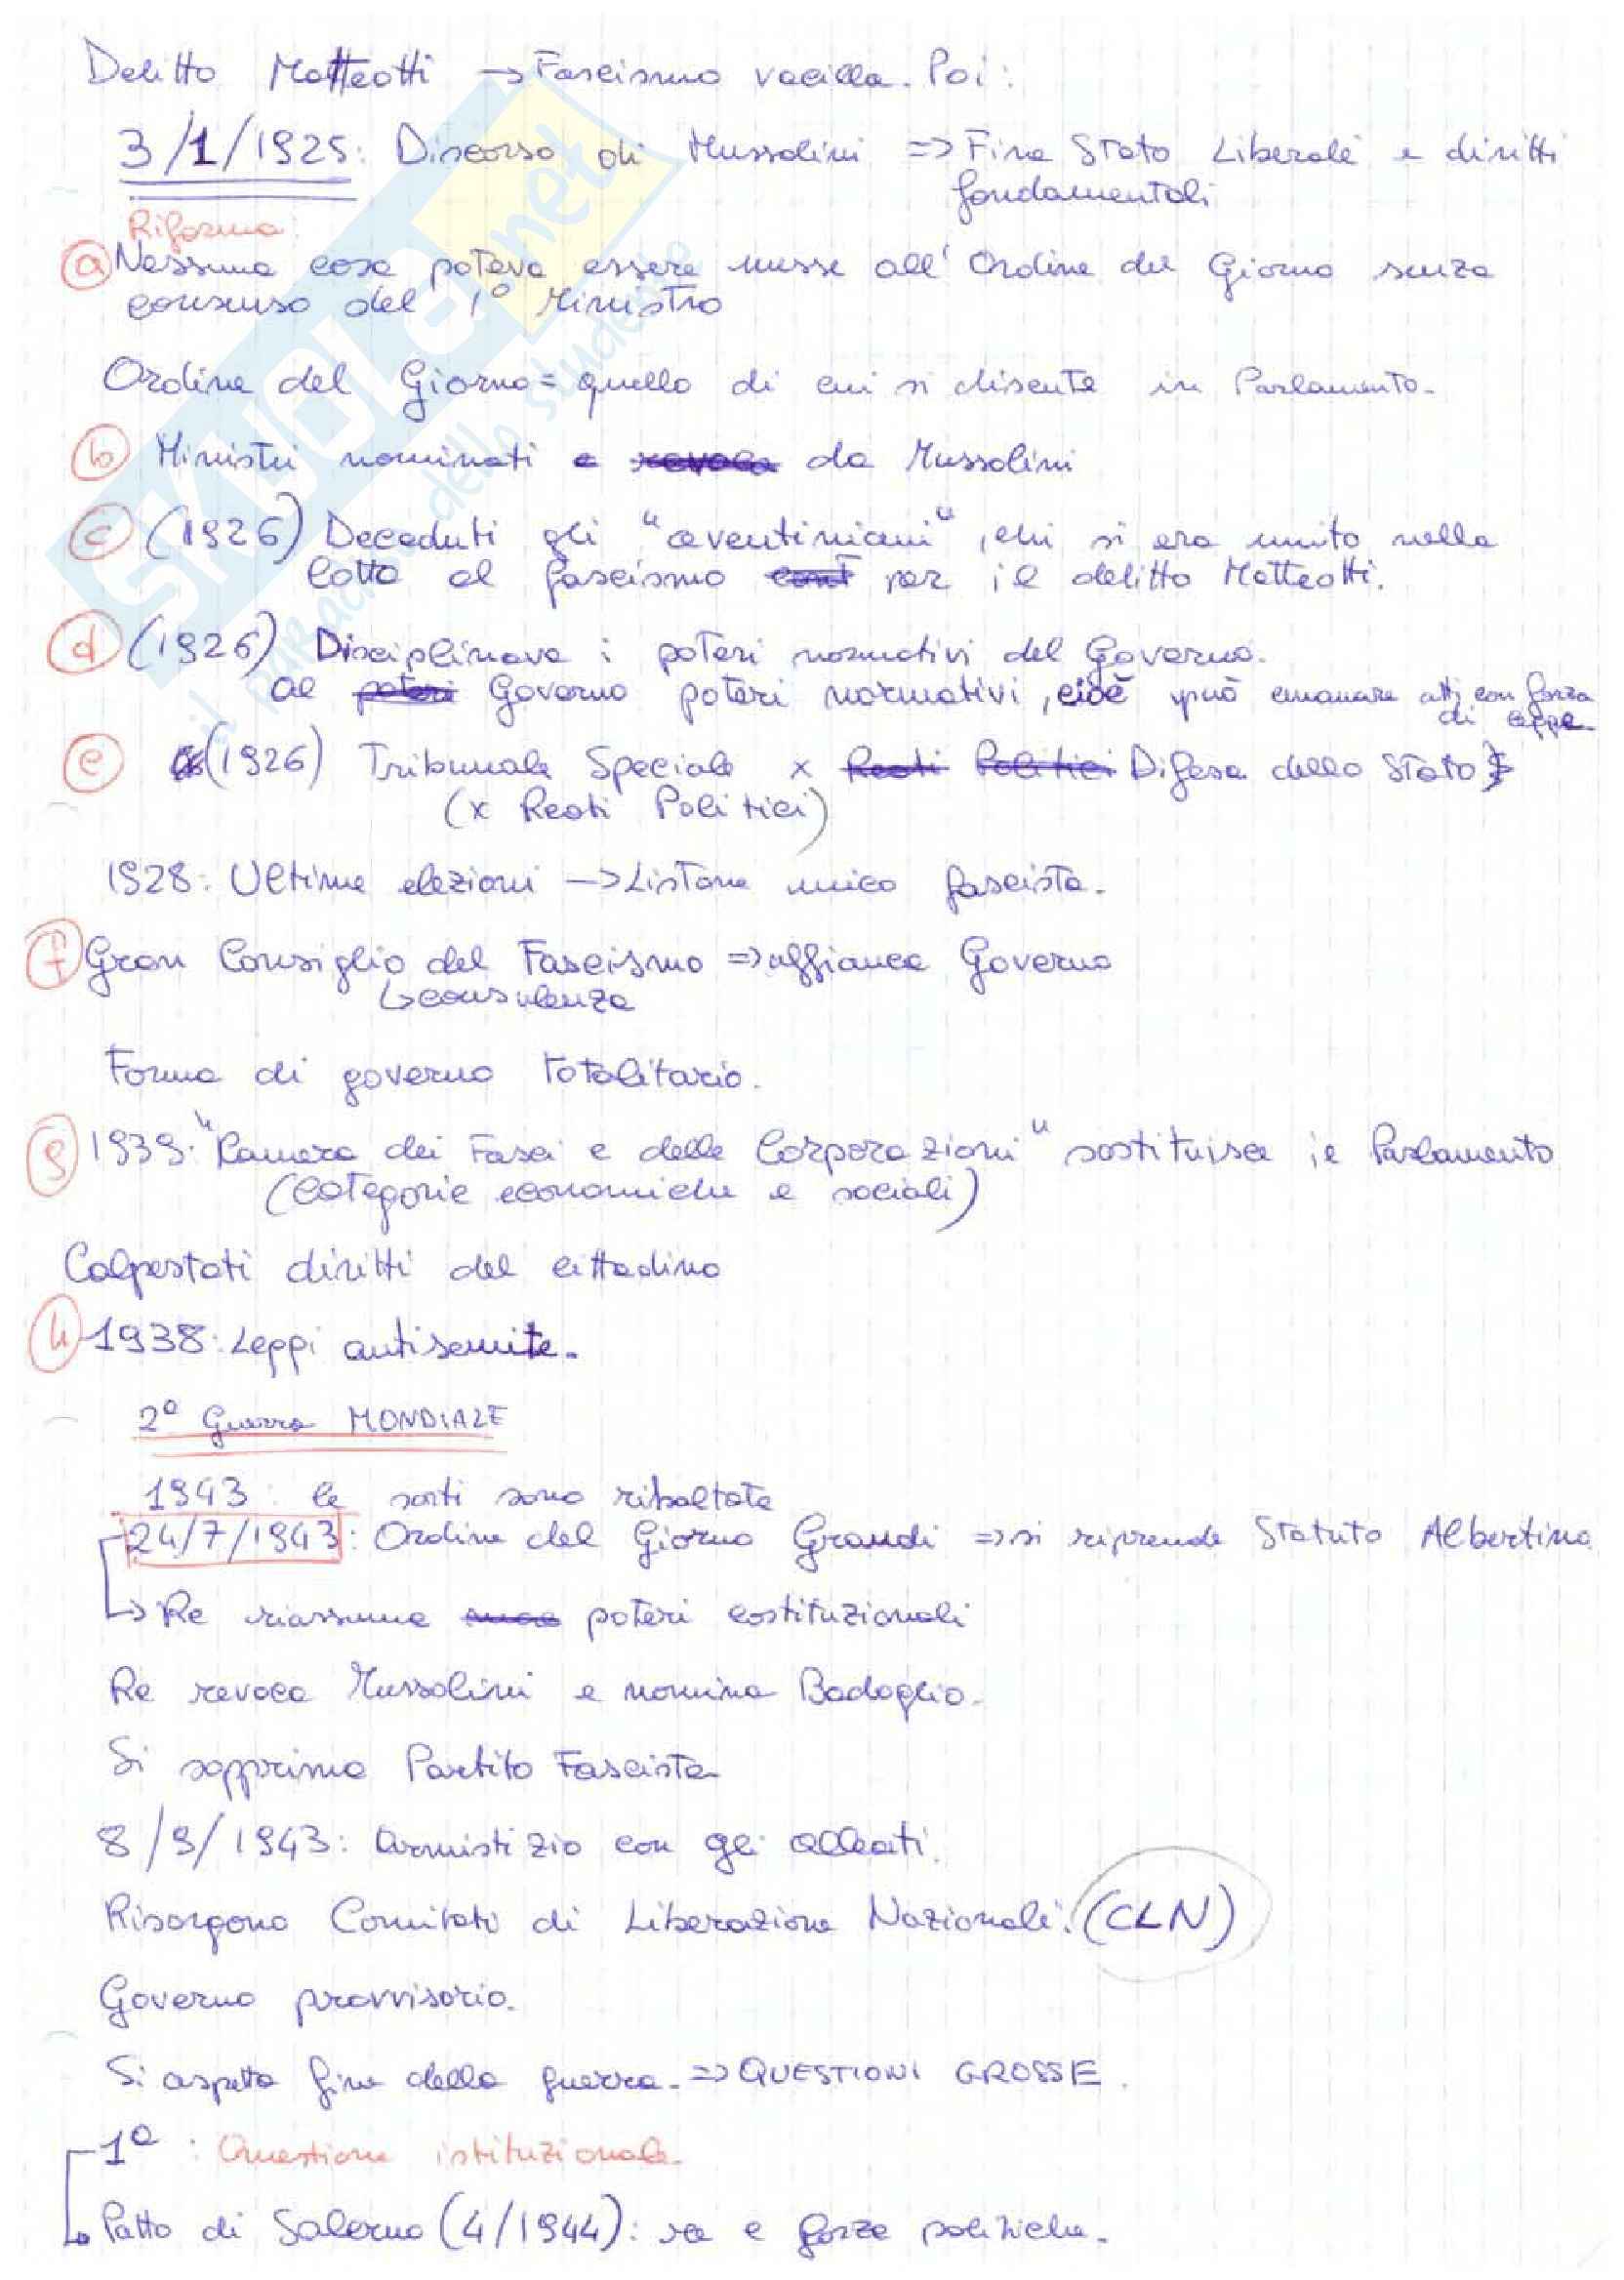 Delitto Matteotti → Fascismo vacilla. Poi:
3/1/1925: Discorso di Mussolini => Fine Stato Liberale e diritti
fondamentali
Riforma:
a Nessuna cosa poteva essere messe all'Ordine del Giorno senza
consenso del 1° Ministro
Ordine del Giorno = quello di cui si discute in Parlamento.
b Ministri nominati e revoca da Mussolini
c (1926) Decaduti gli "aventiniani", chi si era unito nella
lotta al fascismo cont per il delitto Matteotti.
d (1926) Disciplinava i poteri normativi del Governo.
al poteri Governo poteri normativi, cioè può emanare atti con forza
di legge
e (1926) Tribunale Speciale x Reati Politici Difesa dello Stato
(x Reati Politici)
1928: Ultime elezioni → Listone unico fascista.
f Gran Consiglio del Fascismo => affianca Governo
↳ consulenza
Forma di governo totalitario.
g 1939: "Camera dei Fasci e delle Corporazioni" sostituisce il Parlamento
(categorie economiche e sociali)
Calpestati diritti del cittadino
h 1938: Leggi antisemite.
2ª Guerra MONDIALE
1943: le sorti sono ribaltate
24/7/1943: Ordine del Giorno Grandi => si riprende Statuto Albertino
↳ Re riassume suoi poteri costituzionali
Re revoca Mussolini e nomina Badoglio.
Si sopprime Partito Fascista
8/9/1943: Armistizio con gli alleati.
Risorgono Comitati di Liberazione Nazionale. (CLN)
Governo provvisorio.
Si aspetta fine della guerra. => QUESTIONI GROSSE.
1ª: Questione istituzionale.
↳ Patto di Salerno (4/1944): re e forze politiche.
SKUOLA.net
il paradiso dello studente